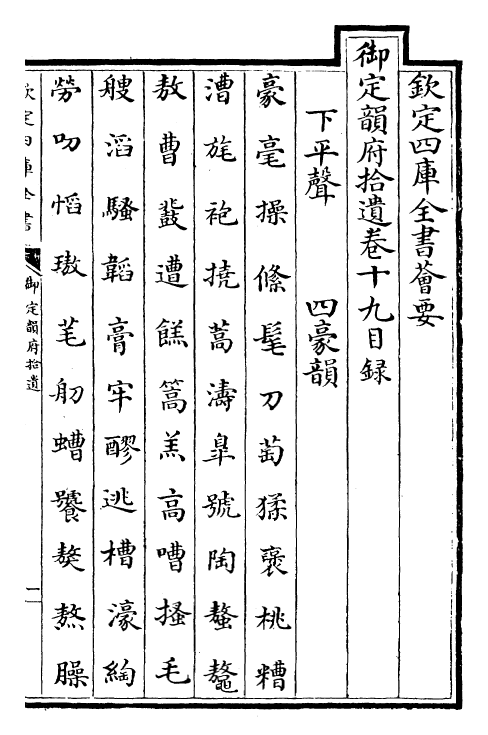 欽定四庫全書薈要
御定韻府拾遺卷十九目録
下平聲 四豪韻
豪毫操絛髦刀萄猱褒桃糟
漕旄袍撓蒿濤臯號陶螯鼇
敖曹鼛遭餻篙羔高嘈搔毛
艘滔騷韜膏牢醪逃槽濠綯
勞叨慆璈芼舠螬饕獒熬臊
欽定四庫全書
御定韻府拾遺
一